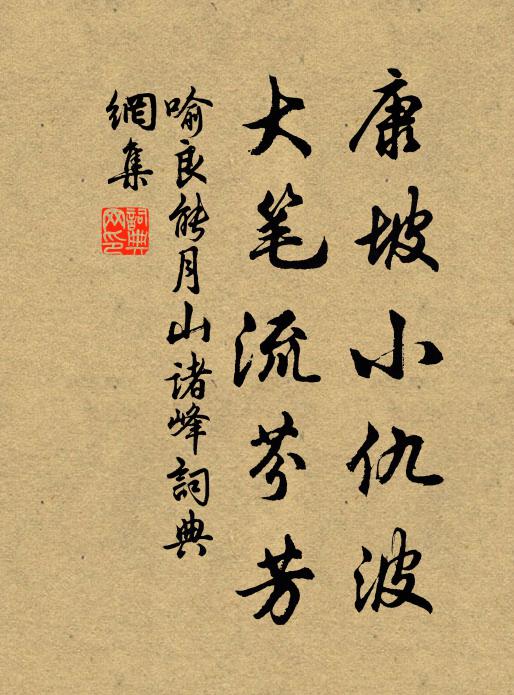 康坡小仇波
大笔流芬芳
喻良能月山诸峰詞典
網集
詞典
网印